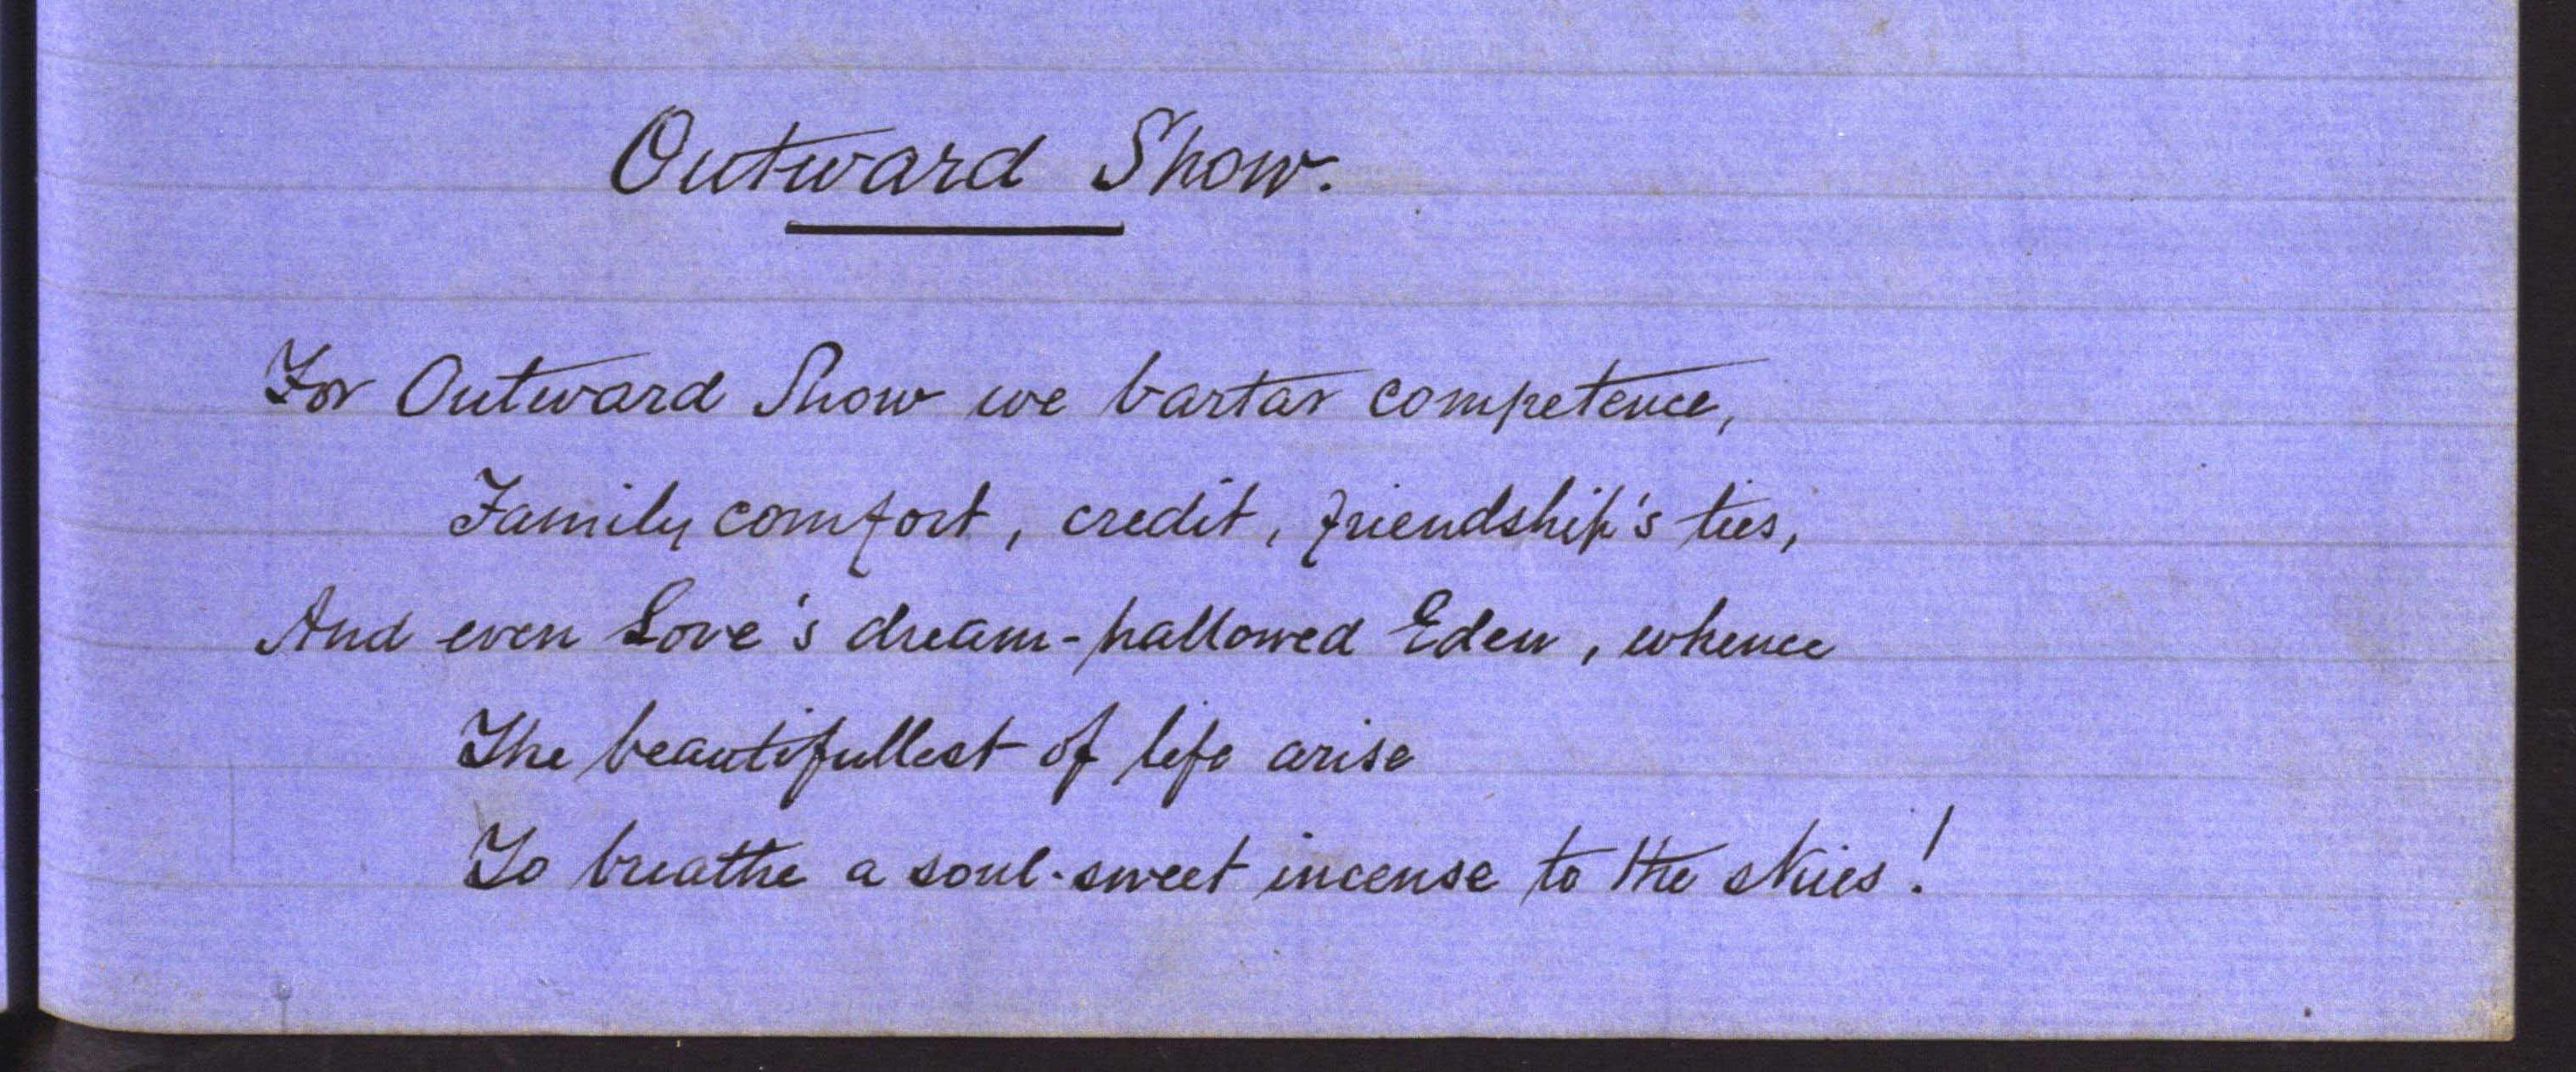 Outward Show.
For Outward Show we barter competence,
Family comfort, credit, friendship's ties,
And even Love's dream-hallowed Eden, whence
The beautifullest of life arise
To breathe a soul-sweet incense to the skies!